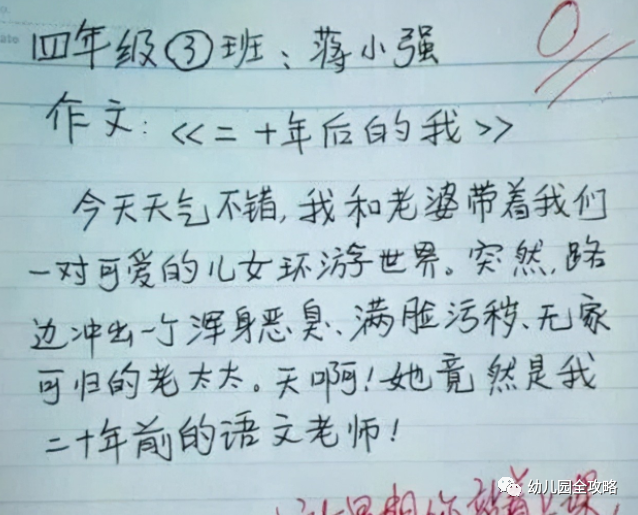 四年级③班:蒋小强
0
作文:<<二十年后的我>>
今天天气不错,我和老婆带着我们
一对可爱的儿女环游世界。突然,路
边冲出一个浑身恶臭、满脸污秽、无家
可归的老太太。天啊!她竟然是我
二十年前的语文老师!
幼儿园全攻略